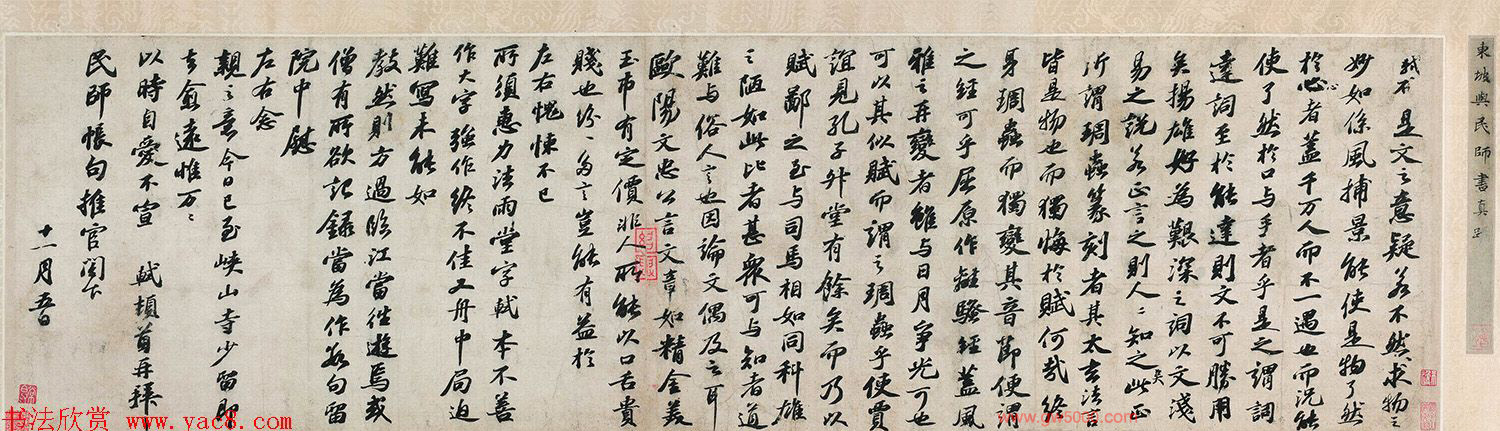 東坡與民師書真跡
是文之意疑若不然求物之
妙如係風捕景能使是物了然
於心者蓋千万人而不一遇也而況能
使了然於口与手者乎是之謂詞
達詞至於能達則文不可勝用
矣揚雄好為艱深之詞以文淺
易之說若正言之則人〻知之矣此正
所謂琱蟲篆刻者其太玄法言
皆是物也而獨悔於賦何哉終
身琱蟲而獨變其音節便謂
之經可乎屈原作離騷經蓋風
雅之再變者雖与日月爭光可也
可以其似賦而謂之琱蟲乎使賈
誼見孔子升堂有餘矣而乃以
賦鄙之至与司馬相如同科雄
之陋如此比者甚衆可与知者道
難与俗人言也因論文偶及之耳
歐陽文忠公言文章如精金美
玉市有定價非人所能以口舌貴
賤也紛〻多言豈能有益於
左右愧悚不已
所須惠力法雨堂字軾本不善
作大字強作終不佳又舟中局迫
難寫未能如
教然則方過臨江當往遊焉或
僧有所欲記錄當為作數句留
院中慰
左右念
親之意今日已至峽山寺少留即
去愈遠惟万〻
以時自愛不宣 軾頓首再拜
民師帳句推官閣下
十一月五日
书法欣赏 www.yac8.com